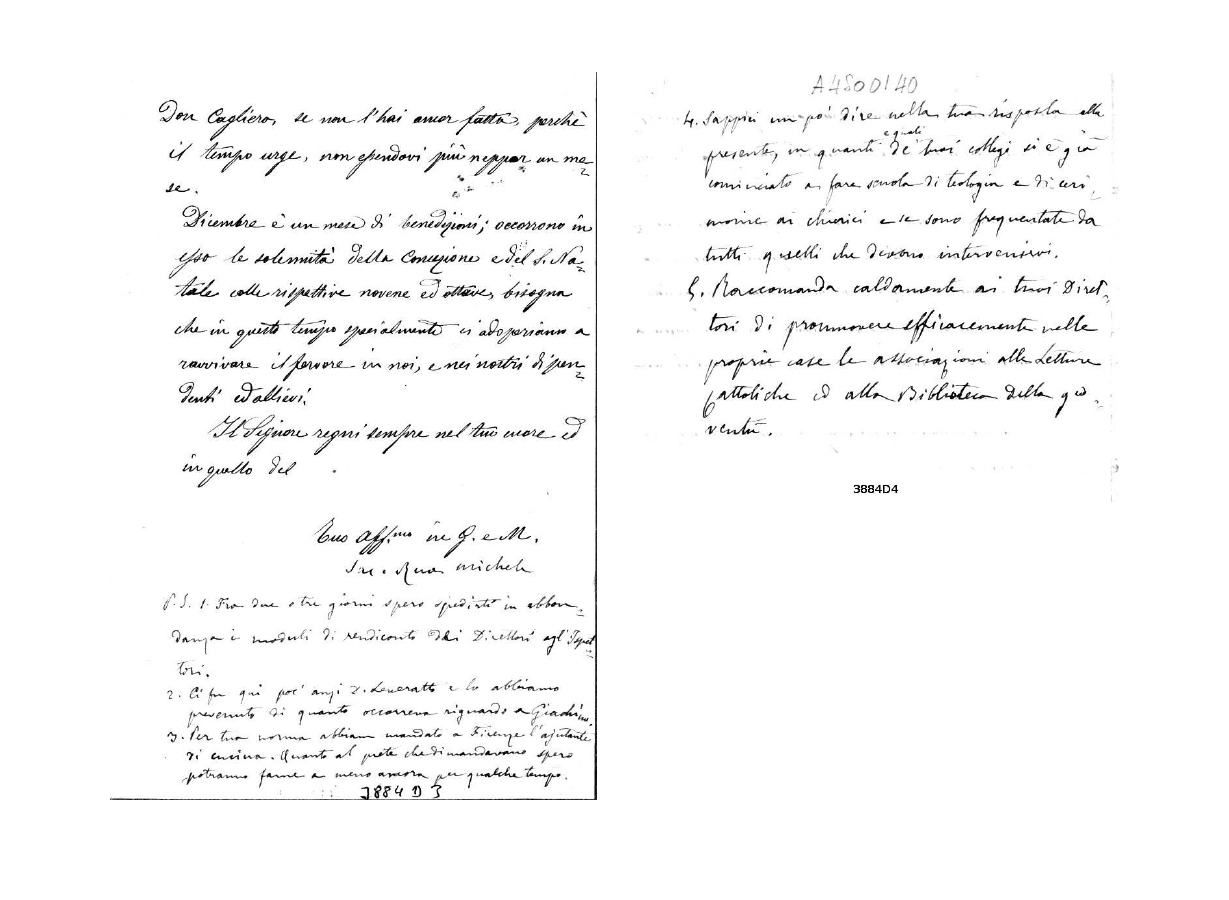 Don Cagliero, se non l'hai ancor fatta, perchè
il tempo urge, non essendovi più neppur un me=
se.
Dicembre è un mese di benedizioni; occorrono in
esso le solennità della Concezione e del S. Na=
tale colle rispettive novene ed ottave, bisogna
che in questo tempo specialmente ci adoperiamo a
ravvivare il fervore in noi, e nei nostri dipen=
denti ed allievi.
Il Signore regni sempre nel tuo cuore ed
in quello del
Tuo Aff.mo in G. e M.
Sac. Rua Michele
P.S. 1. Fra due o tre giorni spero spedirti in abbon=
danza i moduli di rendiconto dei Direttori agl'Ispet=
tori.
2. Ci fu qui poc'anzi D. Leveratto e lo abbiamo
prevenuto di quanto occorreva riguardo a Giachino.
3. Per tua norma abbiam mandato a Firenze l'ajutante
di cucina. Quanto al prete che dimandavano spero
potranno farne a meno ancora per qualche tempo.
3884 D 3
A4500140
4. Sappimi un po' dire nella tua risposta alla
presente, in quanti e quali de' tuoi collegi si è già
cominciato a fare scuola di teologia e di ceri=
monie ai chierici e se sono frequentate da
tutti quelli che devono intervenirvi.
5. Raccomanda caldamente ai tuoi Diret=
tori di promuovere efficacemente nelle
proprie case le associazioni alle Letture
Cattoliche ed alla Biblioteca della gio=
ventù.
3884D4